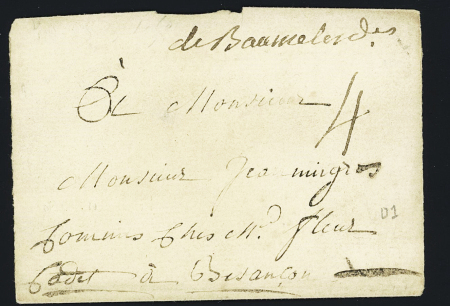 de Baumelesdes
A Monsieur
4
Monsieur Jeanningros
Commis Chés Mr. Fleur
Cadet à Besançon
01